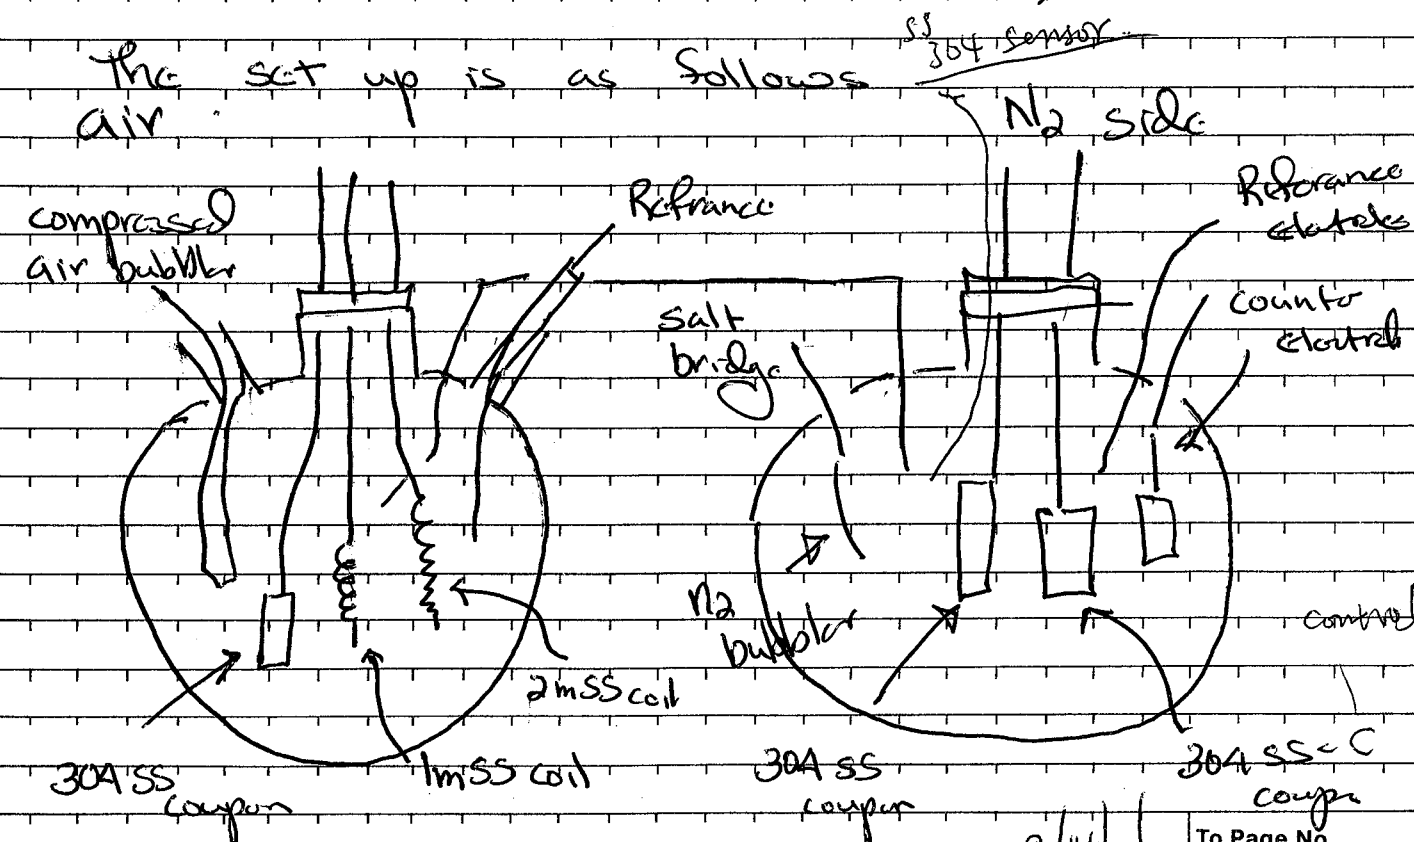 SS
304 sensor
The set up is as follows
air
N2 side
compressed
air bubblar
Refrance
Referance
eletrodes
salt
bridge
counto
elotrode
n2
bubblar
control
2mSS coil
304 SS
coupon
1mSS coil
304 SS
coupon
304 SS-C
coupn
To Page No